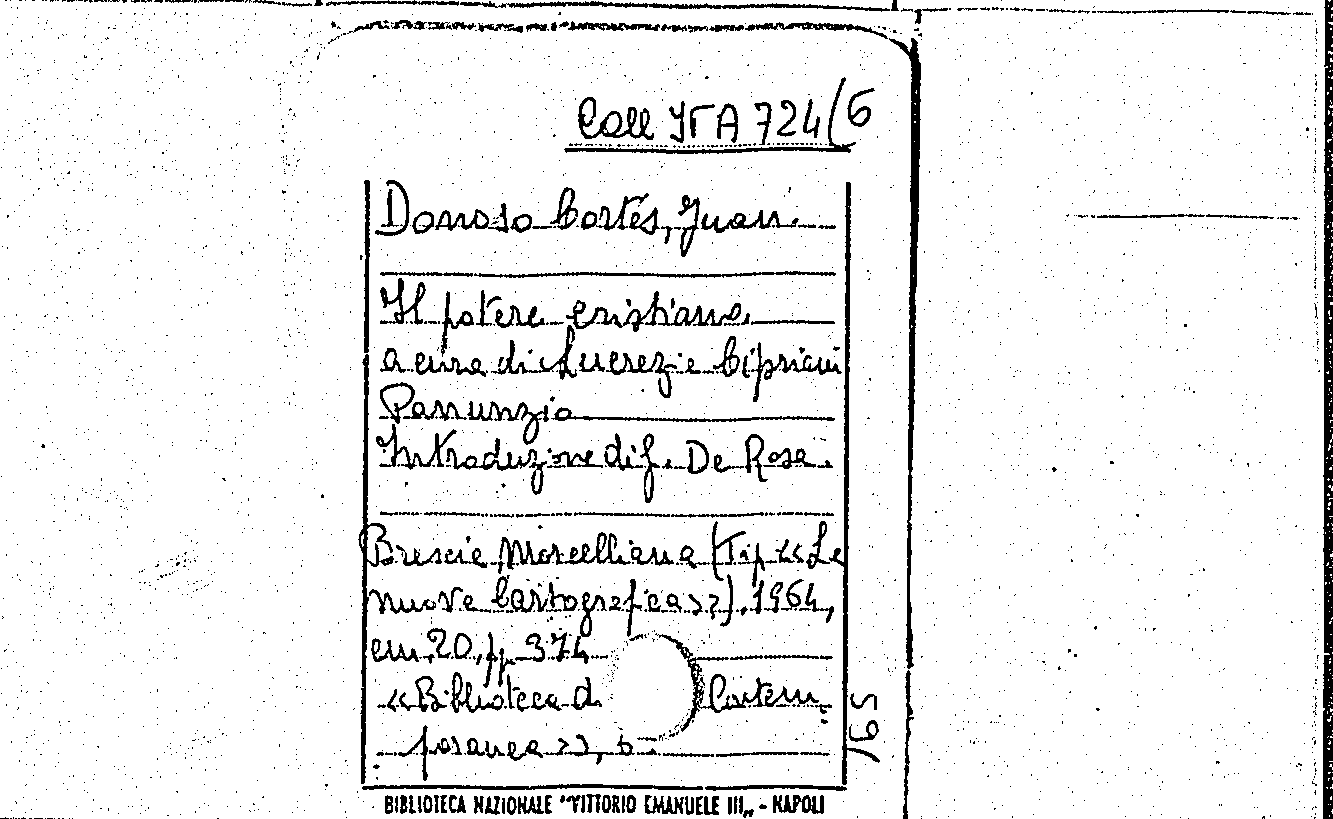 Coll ISA 724/6
Donoso Cortés, Juan.
Il potere cristiano.
a cura di Lucrezia Cipriani
Panunzio
Introduzione di G. De Rosa.
Brescia Morcelliana (Tip. «La
nuova Cartografica»), 1964,
cm. 20, pp. 374
«Biblioteca di Contem-
poranea», 6.
/65
BIBLIOTECA NAZIONALE "VITTORIO EMANUELE III„ - NAPOLI